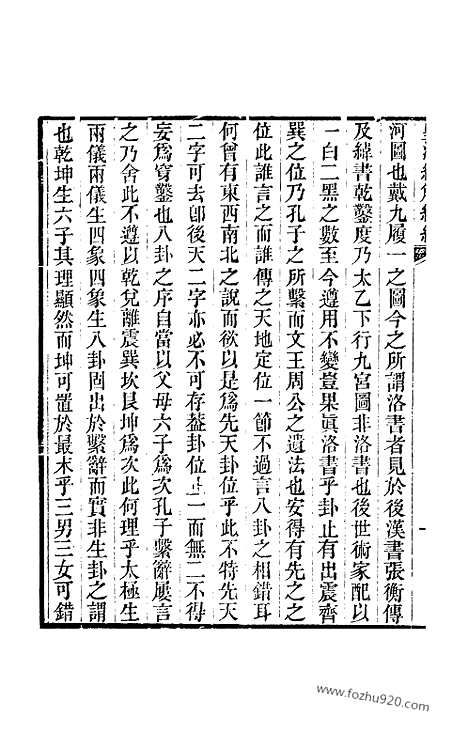 河圖也戴九履一之圖今之所謂洛書者見於後漢書張衡傳
及緯書乾鑿度乃太乙下行九宮圖非洛書也後世術家配以
一白二黑之數至今遵用不變豈果眞洛書乎卦止有出震齊
巽之位乃孔子之所繫而文王周公之遺法也安得有先之之
位此誰言之而誰傳之天地定位一節不過言八卦之相錯耳
何曾有東西南北之說而欲以是爲先天卦位乎此不特先天
二字可去卽後天二字亦必不可存葢卦位止一而無二不得
妄爲穿鑿也八卦之序自當以父母六子爲次孔子繫辭屢言
之乃舍此不遵以乾兌離震巽坎艮坤爲次此何理乎太極生
兩儀兩儀生四象四象生八卦固出於繫辭而實非生卦之謂
也乾坤生六子其理顯然而坤可置於最末乎三男三女可錯
www.fozhu920.com